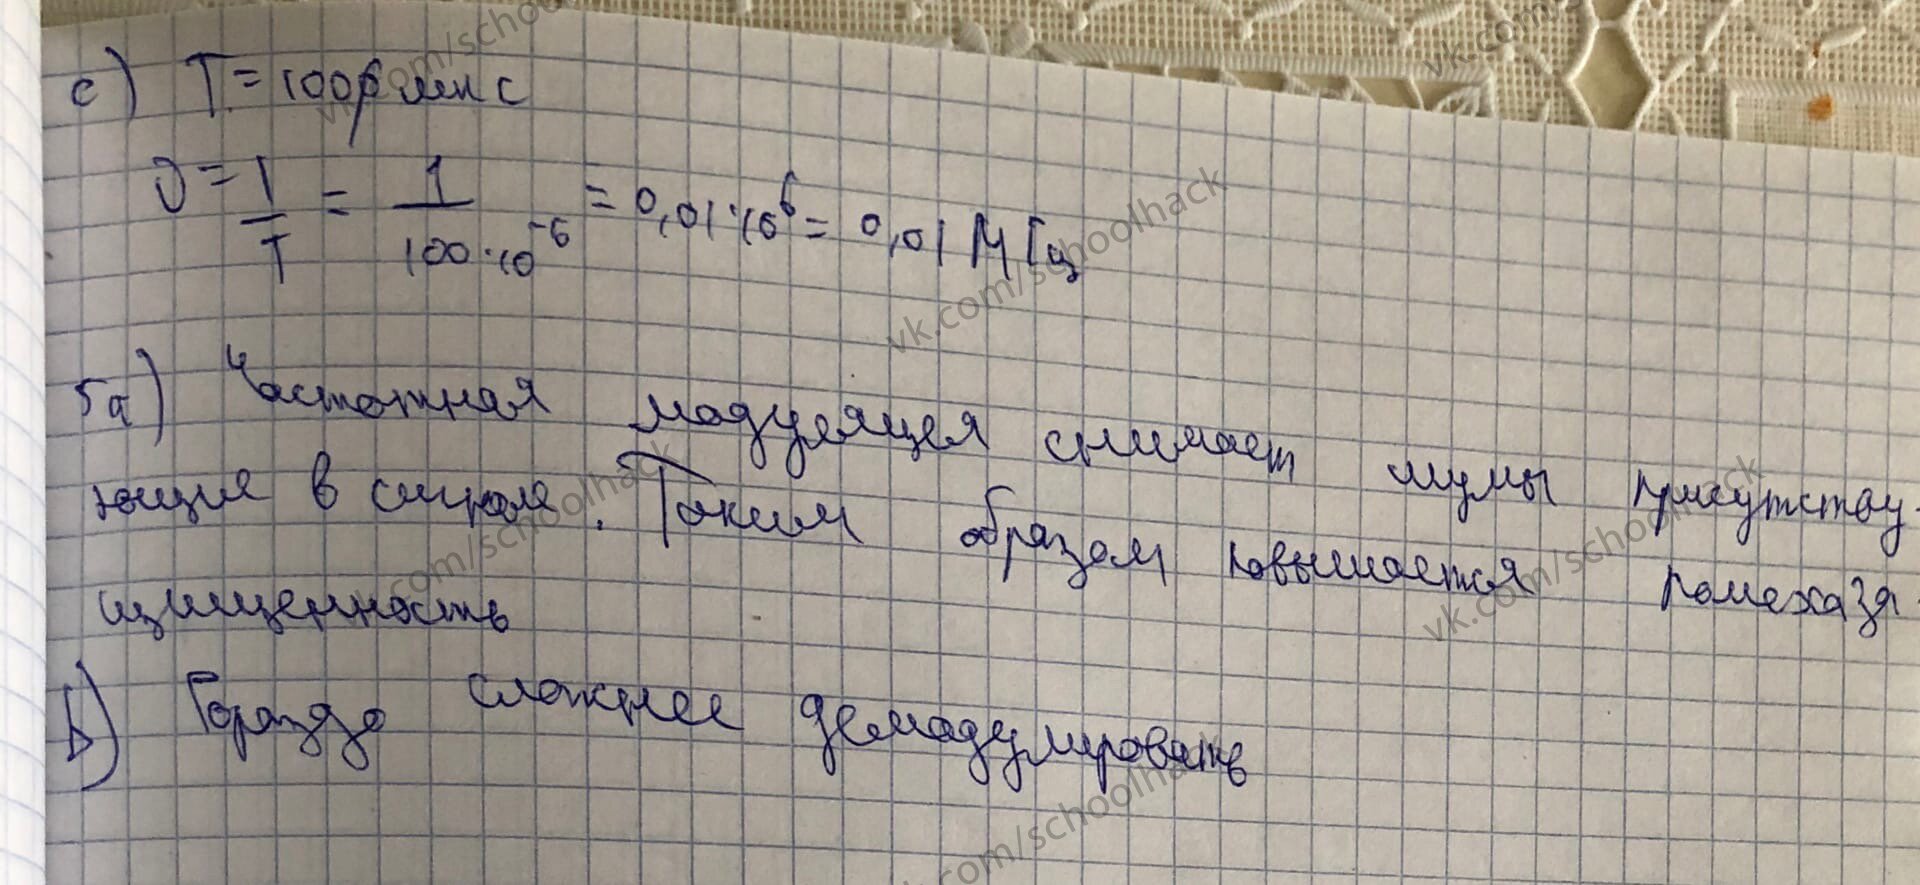 c) T = 100 мкс
υ = 1/T = 1/100·10⁻⁶ = 0,01·10⁶ = 0,01 МГц
5a) Частотная модуляция снимает шумы присутству-
ющие в сигнале. Таким образом повышается помехоза-
щищенность
b) Гораздо сложнее демодулировать
vk.com/schoolhack
vk.com/schoolhack
vk.com/schoolhack
vk.com/schoolhack
vk.com/schoolhack
vk.com/schoolhack